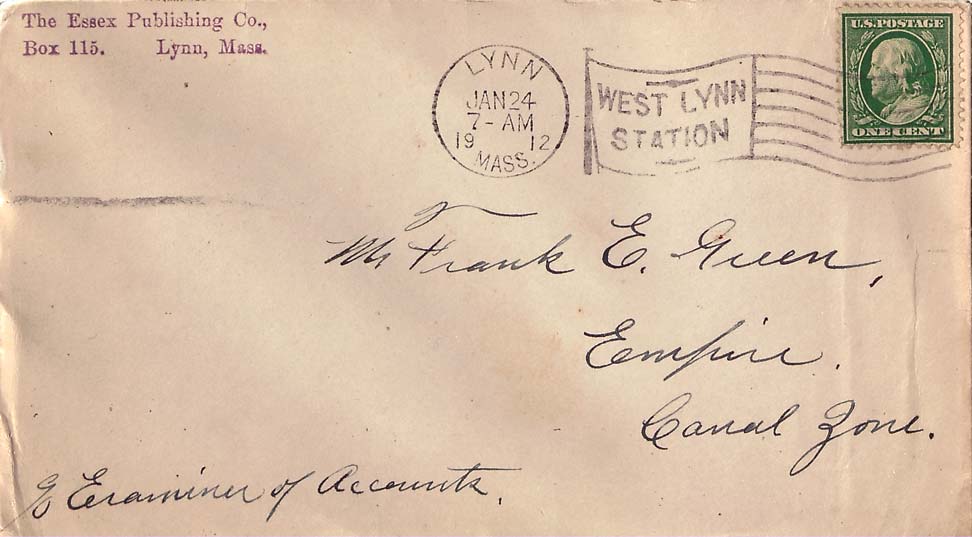 The Essex Publishing Co.,
Box 115. Lynn, Mass.
LYNN
JAN 24
7-AM
19 12
MASS.
WEST LYNN
STATION
U.S. POSTAGE
ONE CENT
Mr Frank E. Green,
Empire.
Canal Zone.
c/o Examiner of Accounts.